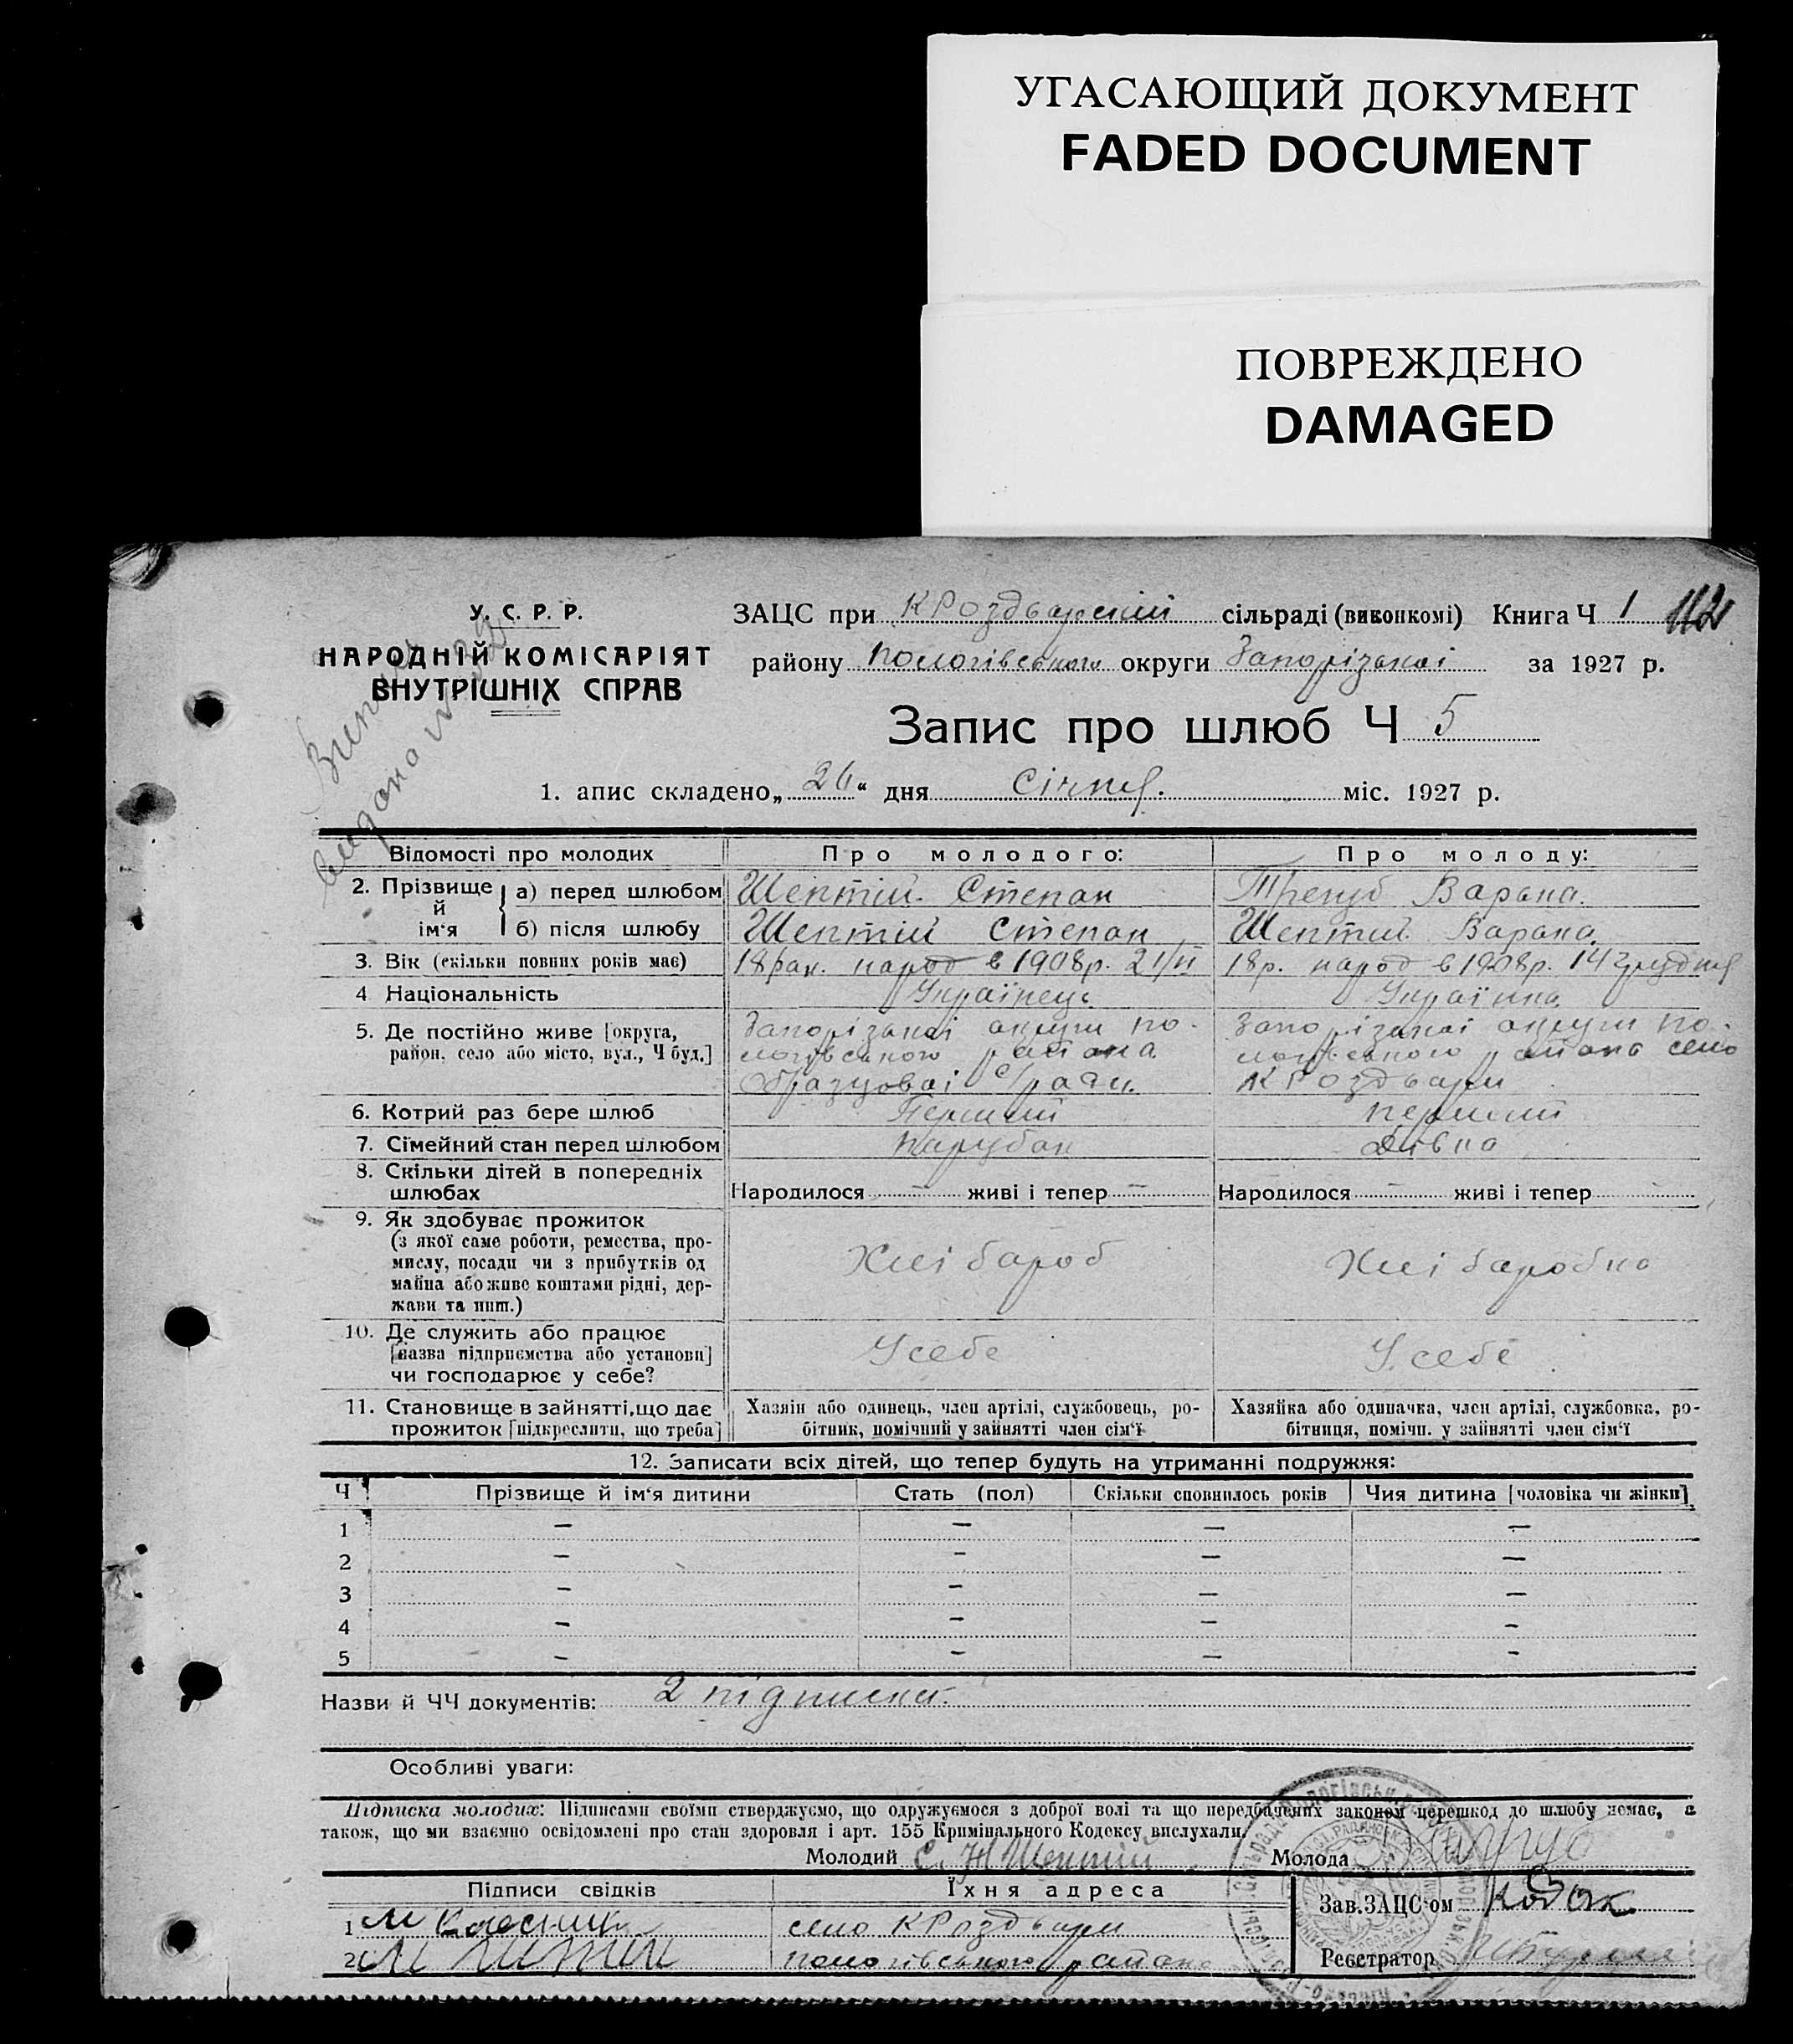 УГАСАЮЩИЙ ДОКУМЕНТ
FADED DOCUMENT
ПОВРЕЖДЕНО
DAMAGED
У. С. Р. Р.
НАРОДНІЙ КОМІСАРІЯТ
ВНУТРІШНІХ СПРАВ
ЗАЦС при КРоздорський сільраді (виконкомі) Книга Ч 1 112
району пологівського округи Запорізькаі за 1927 р.
Запис про шлюб Ч 5
1. апис складено „ 26 “ дня Січня. міс. 1927 р.
Відомості про молодих Про молодого: Про молоду:
2. Прізвище й ім‘я
а) перед шлюбом Шептій Степан Трегуб Варвка.
б) після шлюбу Шептій Степан Шептий Варвка
3. Вік (скільки повних років має) 18 рак. народ в 1908р. 21/II 18р. народ в 1908р. 14 грудня
4 Національність Українець Українка
5. Де постійно живе [округа, район, село або місто, вул., Ч буд.]
Запорізькаі округи по-
логівського района
Образцоваі С/ради.
Запорізькаі округи по-
логівського района село
КРоздори
6. Котрий раз бере шлюб Перший перший
7. Сімейний стан перед шлюбом парубак дівка
8. Скільки дітей в попередніх
шлюбах Народилося — живі і тепер — Народилося — живі і тепер
9. Як здобуває прожиток
(з якої саме роботи, ремества, про-
мислу, посади чи з прибутків од
майна або живе коштами рідні, дер-
жави та инш.)
Хлібароб Хлібаробка
10. Де служить або працює
[назва підприємства або установи]
чи господарює у себе?
У себе У себе
11. Становище в зайнятті, що дає
прожиток [підкреслити, що треба]
Хазяїн або одинець, член артілі, службовець, ро-
бітник, помічний у зайнятті член сім‘ї
Хазяйка або одиначка, член артілі, службовка, ро-
бітниця, помічн. у зайнятті член сім‘ї
12. Записати всіх дітей, що тепер будуть на утриманні подружжя:
Ч Прізвище й ім‘я дитини Стать (пол) Скільки сповнилось років Чия дитина [чоловіка чи жінки]
1 — — — —
2 — — — —
3 — — — —
4 — — — —
5 — — — —
Назви й ЧЧ документів: 2 підписка.
Особливі уваги:
Підписка молодих: Підписами своїми стверджуємо, що одружуємося з доброї волі та що передбачених законом перешкод до шлюбу немає, а
також, що ми взаємно освідомлені про стан здоровля і арт. 155 Кримінального Кодексу вислухали.
Молодий С. Шептій Молода
Підписи свідків Їхня адреса
1 Колесник село КРоздори
2 пологівського района
Зав. ЗАЦС‘ом
Реєстратор